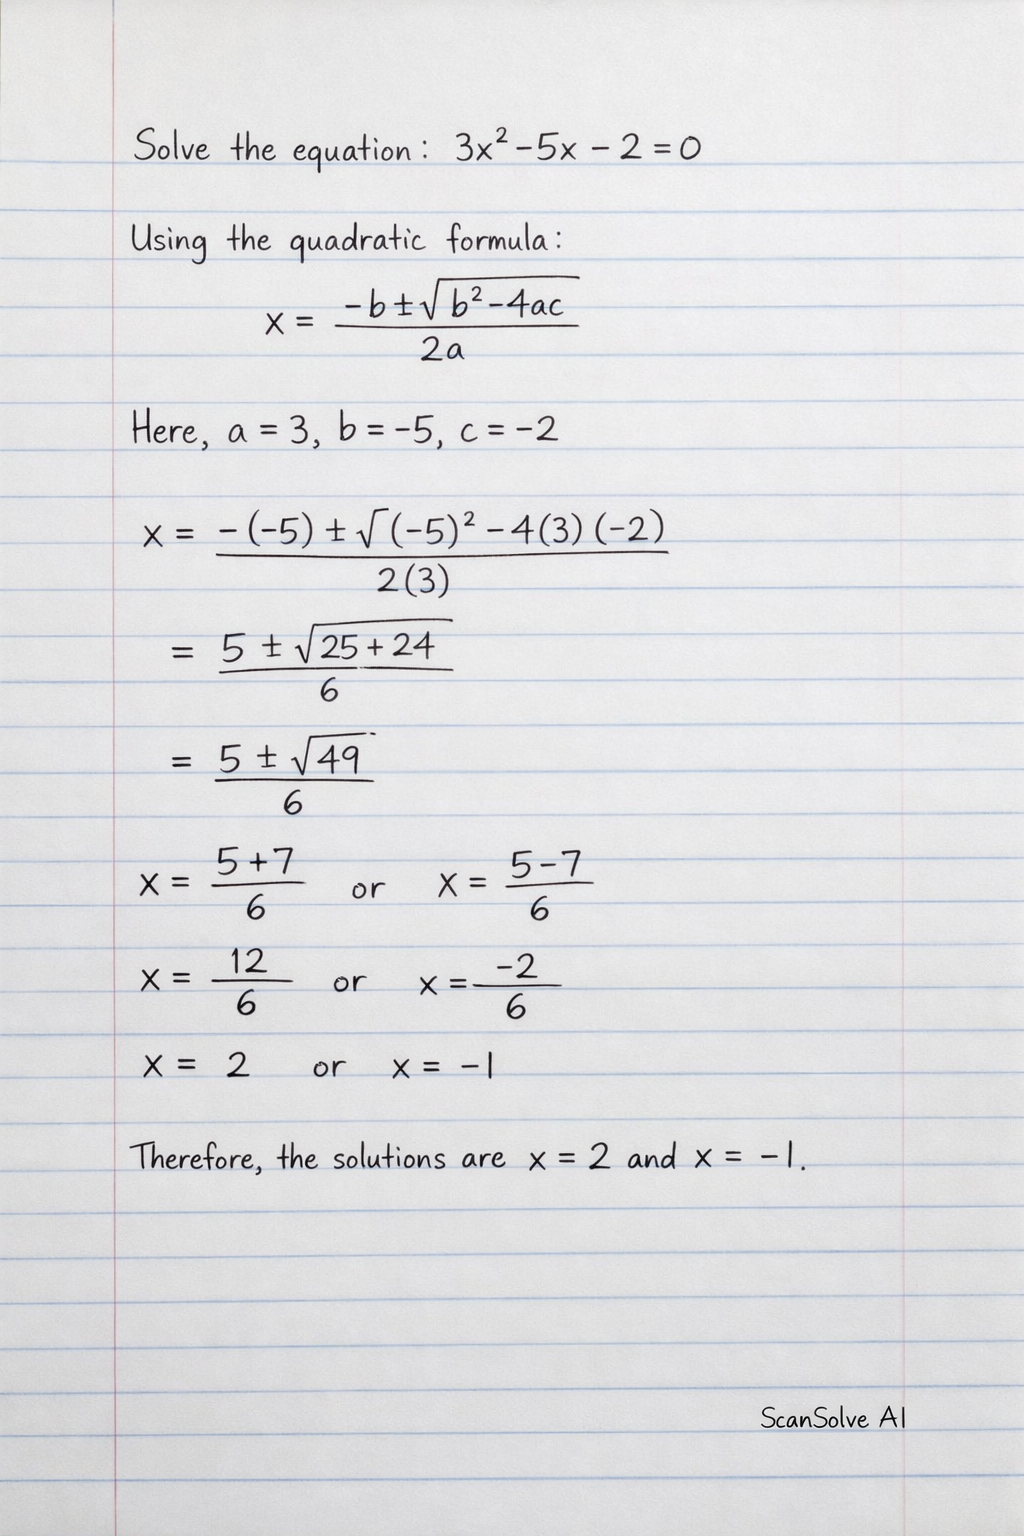 Solve the equation: 3x² - 5x - 2 = 0
Using the quadratic formula:
x = (-b ± √(b² - 4ac)) / 2a
Here, a = 3, b = -5, c = -2
x = (-(-5) ± √(-5)² - 4(3)(-2)) / 2(3)
= (5 ± √(25 + 24)) / 6
= (5 ± √49) / 6
x = (5 + 7) / 6 or x = (5 - 7) / 6
x = 12 / 6 or x = -2 / 6
x = 2 or x = -1
Therefore, the solutions are x = 2 and x = -1.
ScanSolve AI